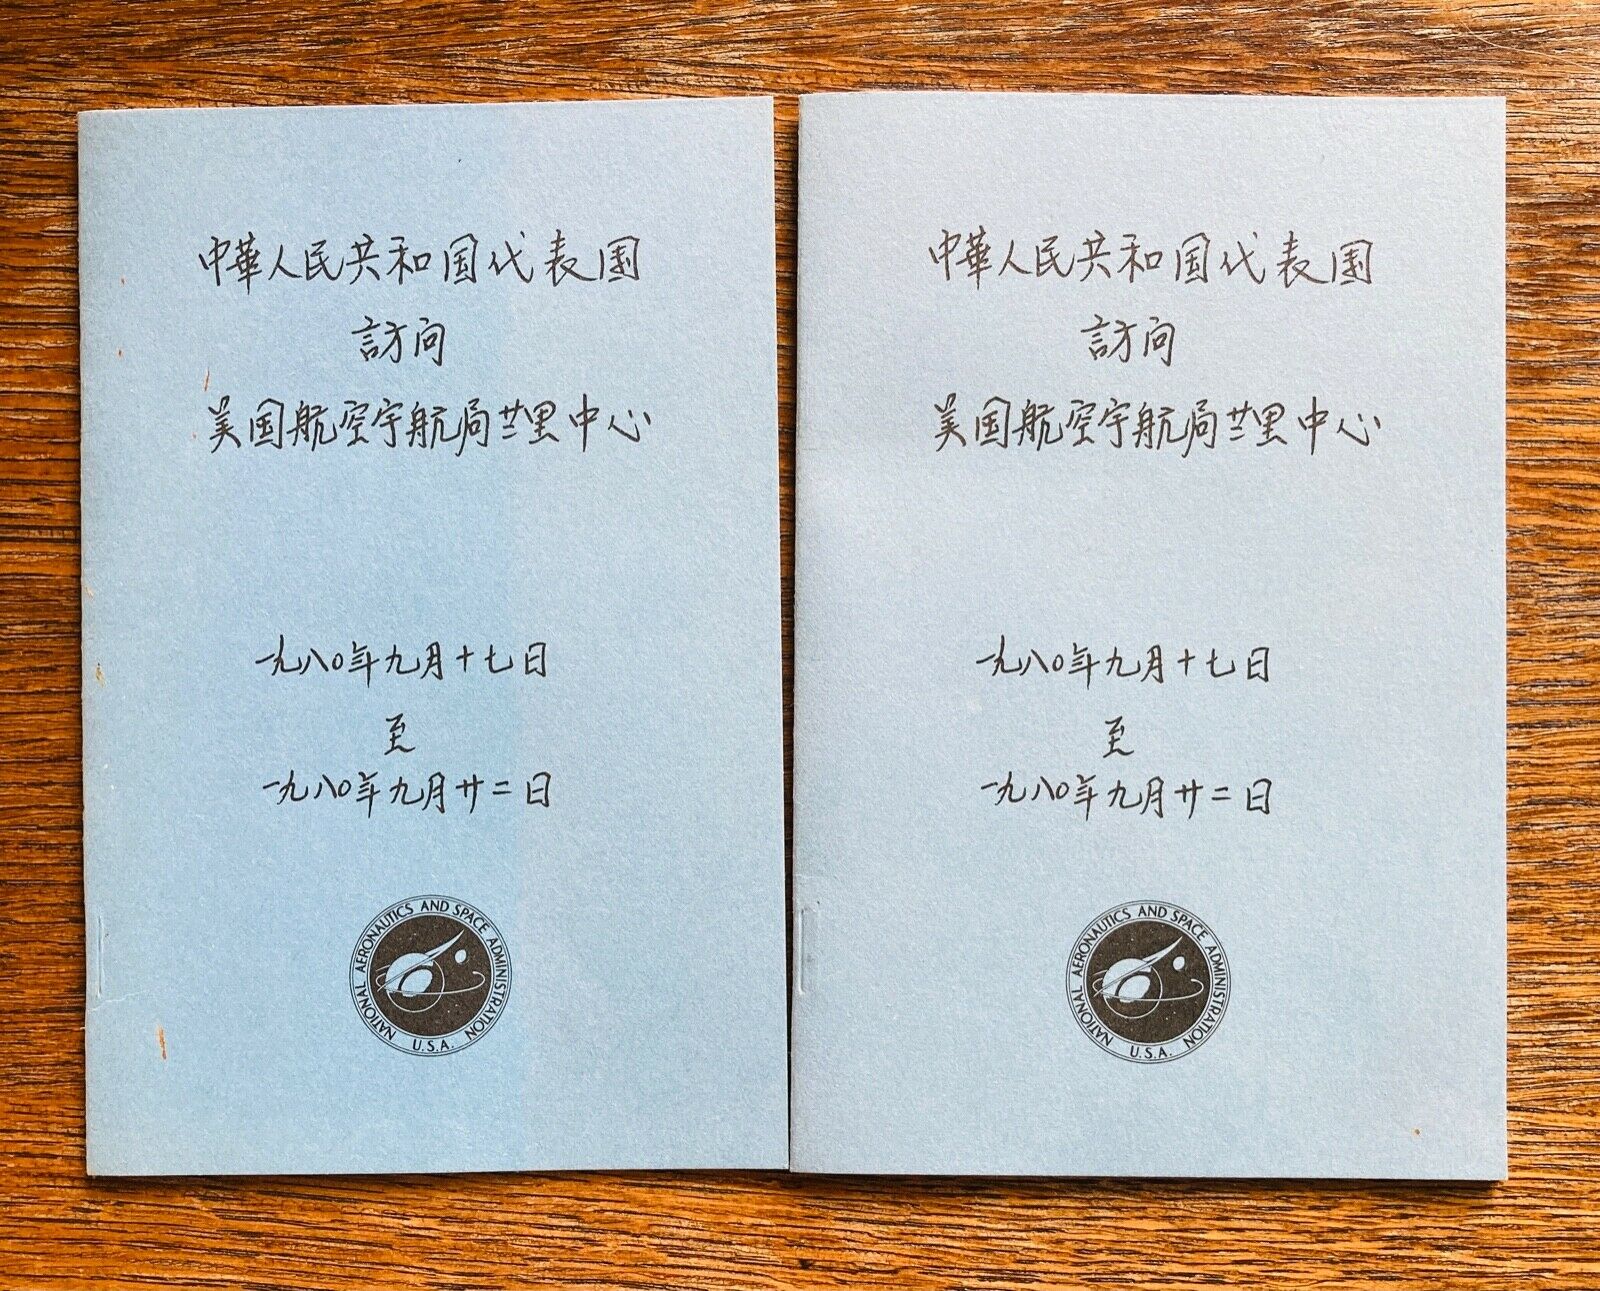 中華人民共和国代表团
訪问
美国航空宇航局兰里中心
一九八〇年九月十七日
至
一九八〇年九月廿二日
NATIONAL AERONAUTICS AND SPACE ADMINISTRATION
U.S.A.
中華人民共和国代表团
訪问
美国航空宇航局兰里中心
一九八〇年九月十七日
至
一九八〇年九月廿二日
NATIONAL AERONAUTICS AND SPACE ADMINISTRATION
U.S.A.